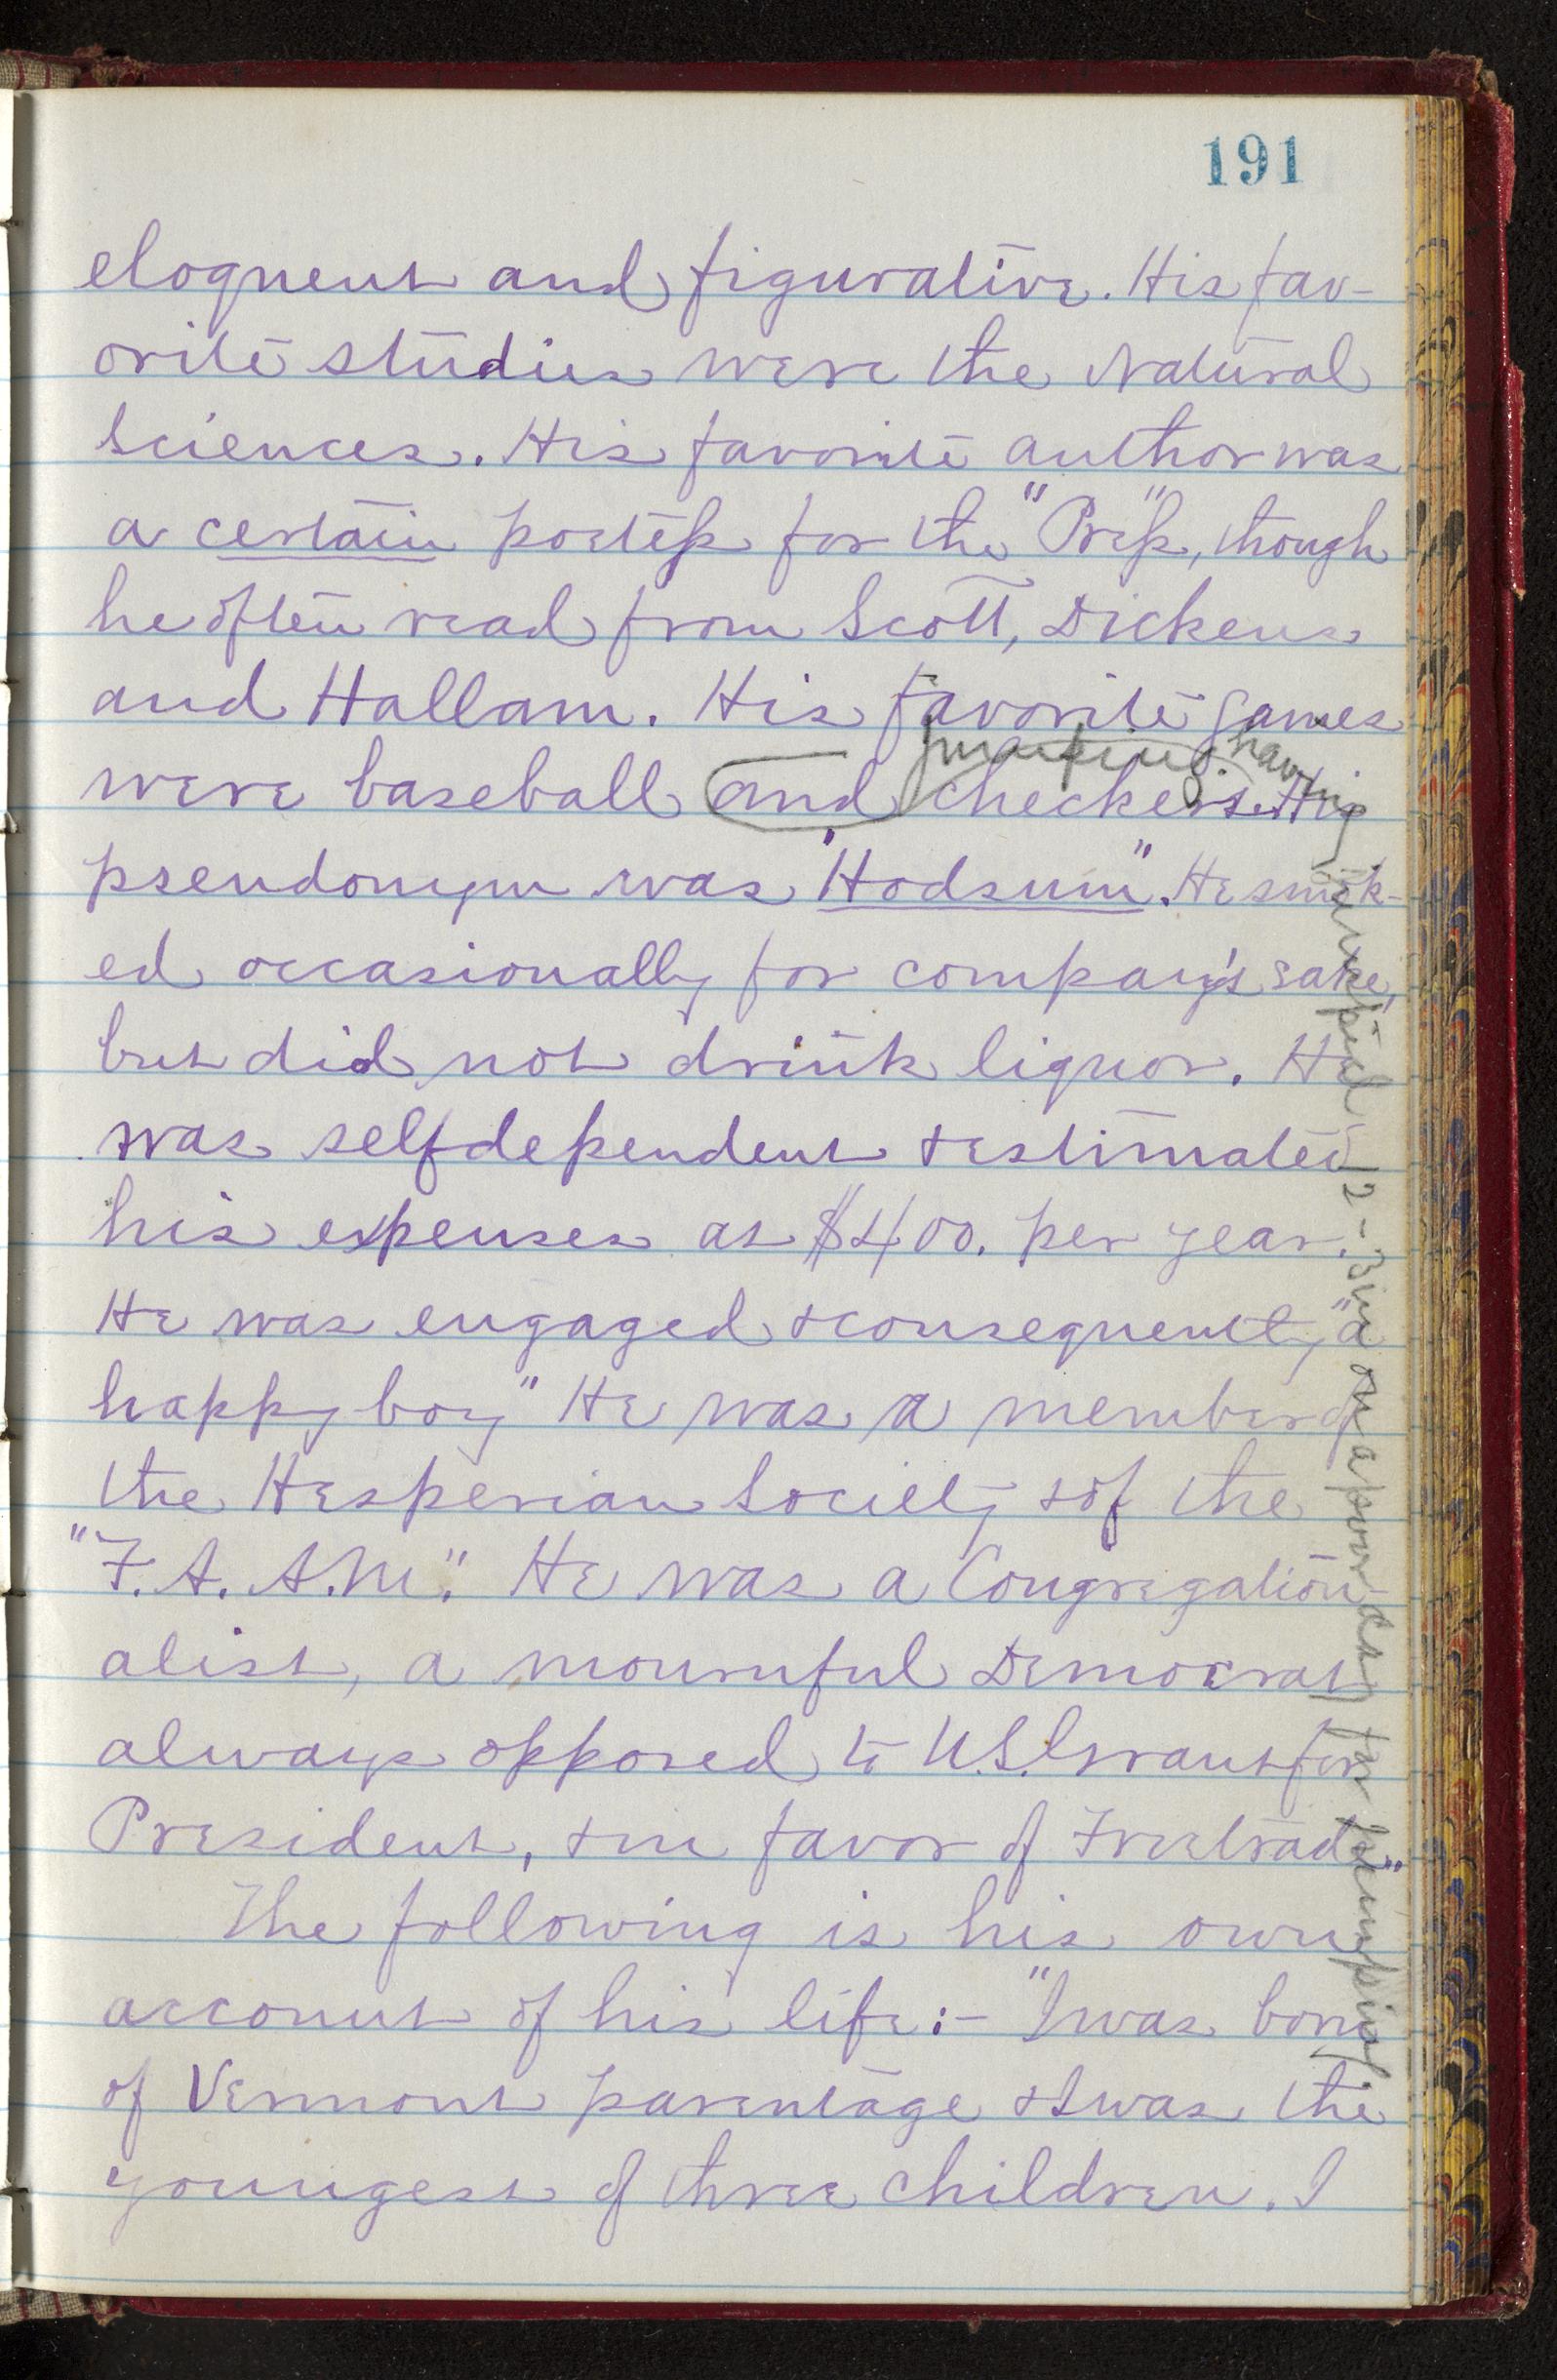 191
eloquent and figurative. His fav-
orite studies were the Natural
Sciences. His favorite author was
a certain poetess for the "Press", though
he often read from Scott, Dickens
and Hallam. His favorite games
jumping having jumped 12-3 in on a poor day for jumping
were baseball and checkers. His
pseudonym was "Hodsum". He smok-
ed occasionally for company's sake,
but did not drink liquor. He
was selfdependent & estimated
his expenses at $400. per year.
He was engaged & consequently, "a
happy boy" He was a member of
the Hesperian Society & of the
"F. A. A. M." He was a Congregation-
alist, a mournful Democrat
always opposed to U.S. Grant for
President, & in favor of Freetrade"
The following is his own
account of his life:- "I was born
of Vermont parentage & I was the
youngest of three children. I